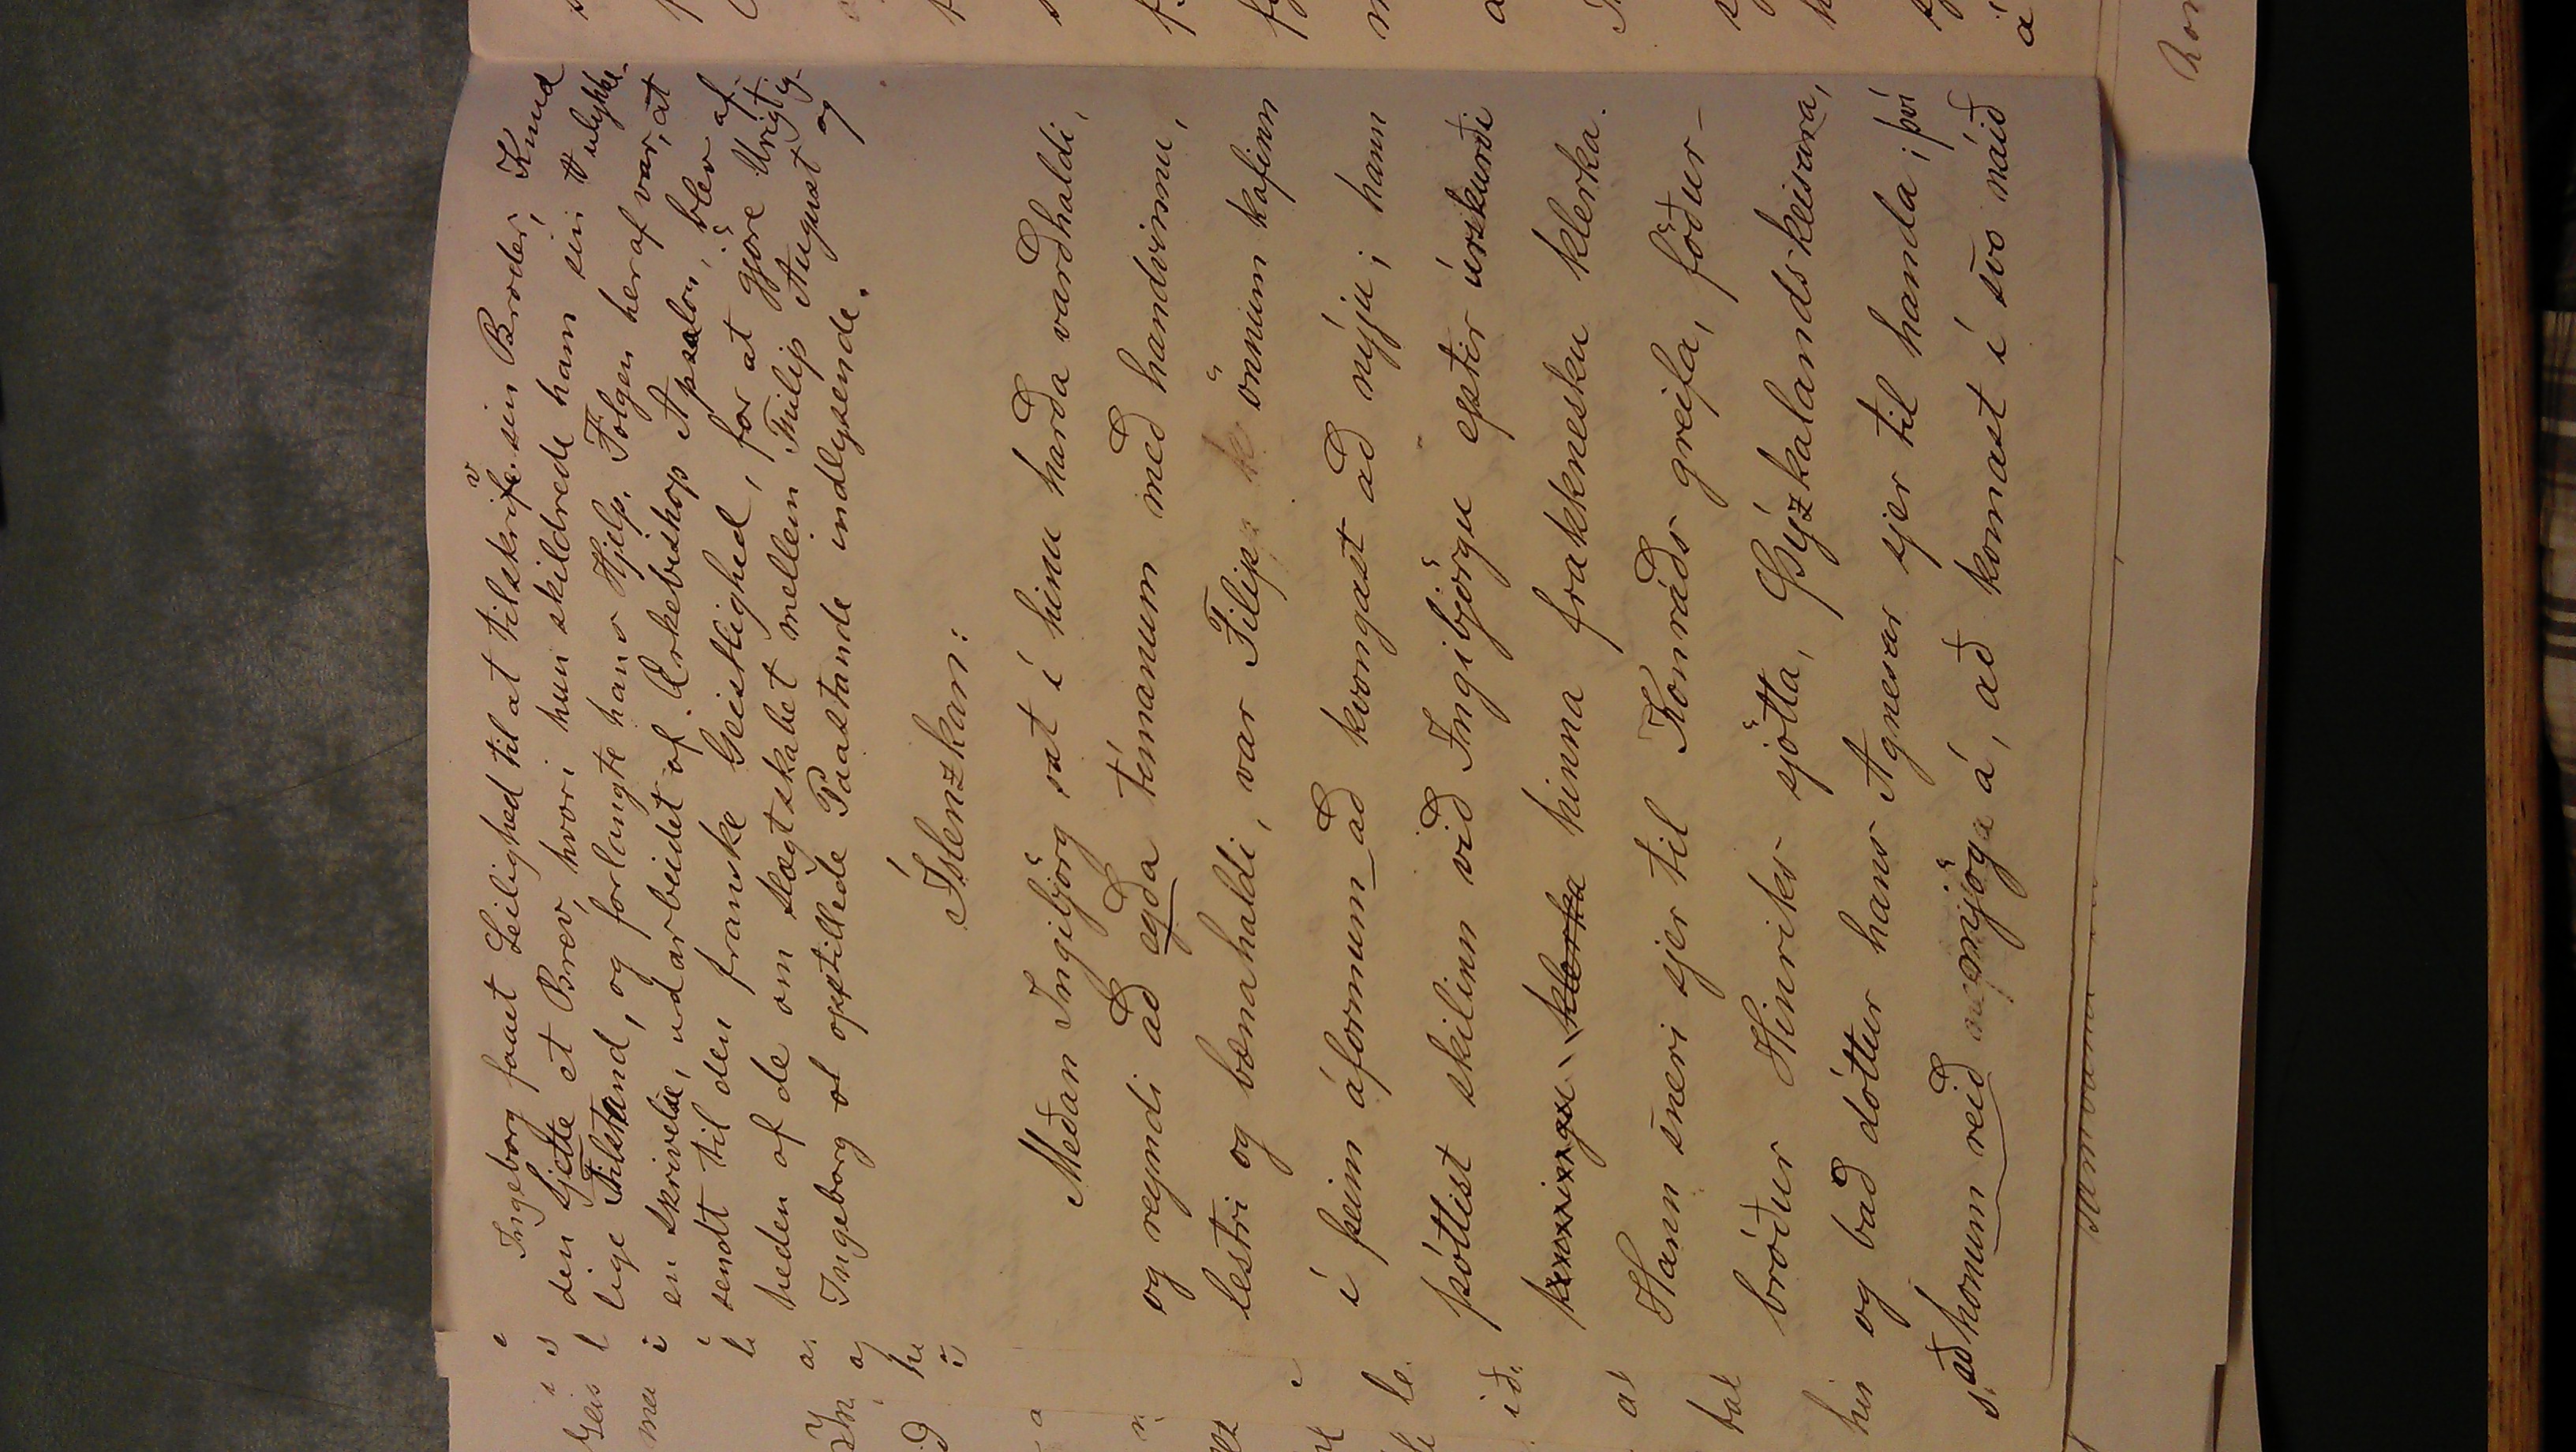 Ingeborg faaet Leilighed til at tilskrive sin Broder, Knud
den sjette et Brev, hvori hun skildrede ham sin ulykke-
lige Tilstand, og forlangte hans Hjelp. Følgen heraf var, at
en skrivelse, udarbeidet af Erkebiskop Apsalon, blev af-
sendt til den franske Geistlighed, for at gjøre Urigtig-
heden af de om slægtskabet mellem Filip August og
Ingeborg opstillede Paastande indlysende.
Íslenzkan:
Meðan Ingibjörg sat í hinu harða varðhaldi,
og reyndi að eyða tímanum með handvinnu,
lestri og bænahaldi, var Filip önnum kafinn
í þeim áformum að kvongast að nýju; hann
þóttist skilinn við Ingibjörgu eptir úrskurði
hinna frakknesku klerka.
Hann sneri sjer til Konráðs greifa, föður-
bróður Hinriks sjötta, Þýzkalandskeisara,
og bað dóttur hans Agnesar sjer til handa; því
að honum reið mjög á, að komast í svo náið